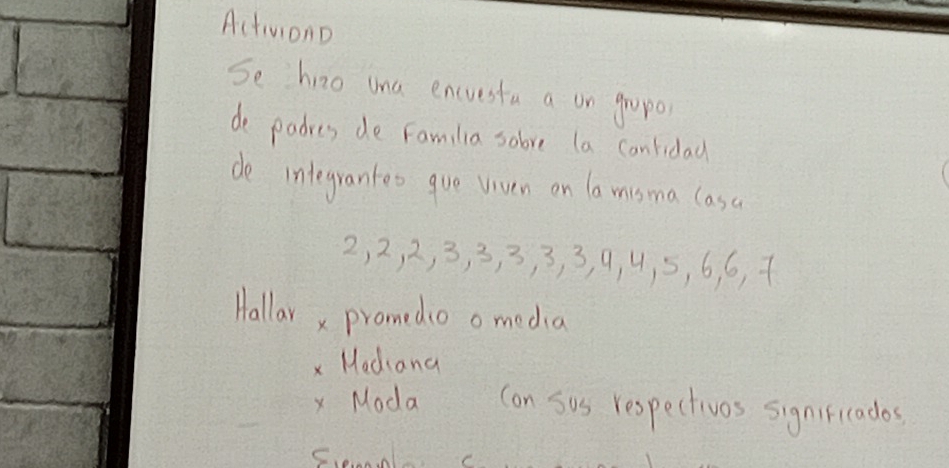 ActiviDAD
Se hizo una encuesta a un grupo
de padres de Familia sobre la cantidad
de integrantes que viven en la misma casa
2, 2, 2, 3, 3, 3, 3, 3, 4, 4, 5, 6, 6, 7
Hallar x promedio o media
x Mediana
x Moda con sus respectivos significados.